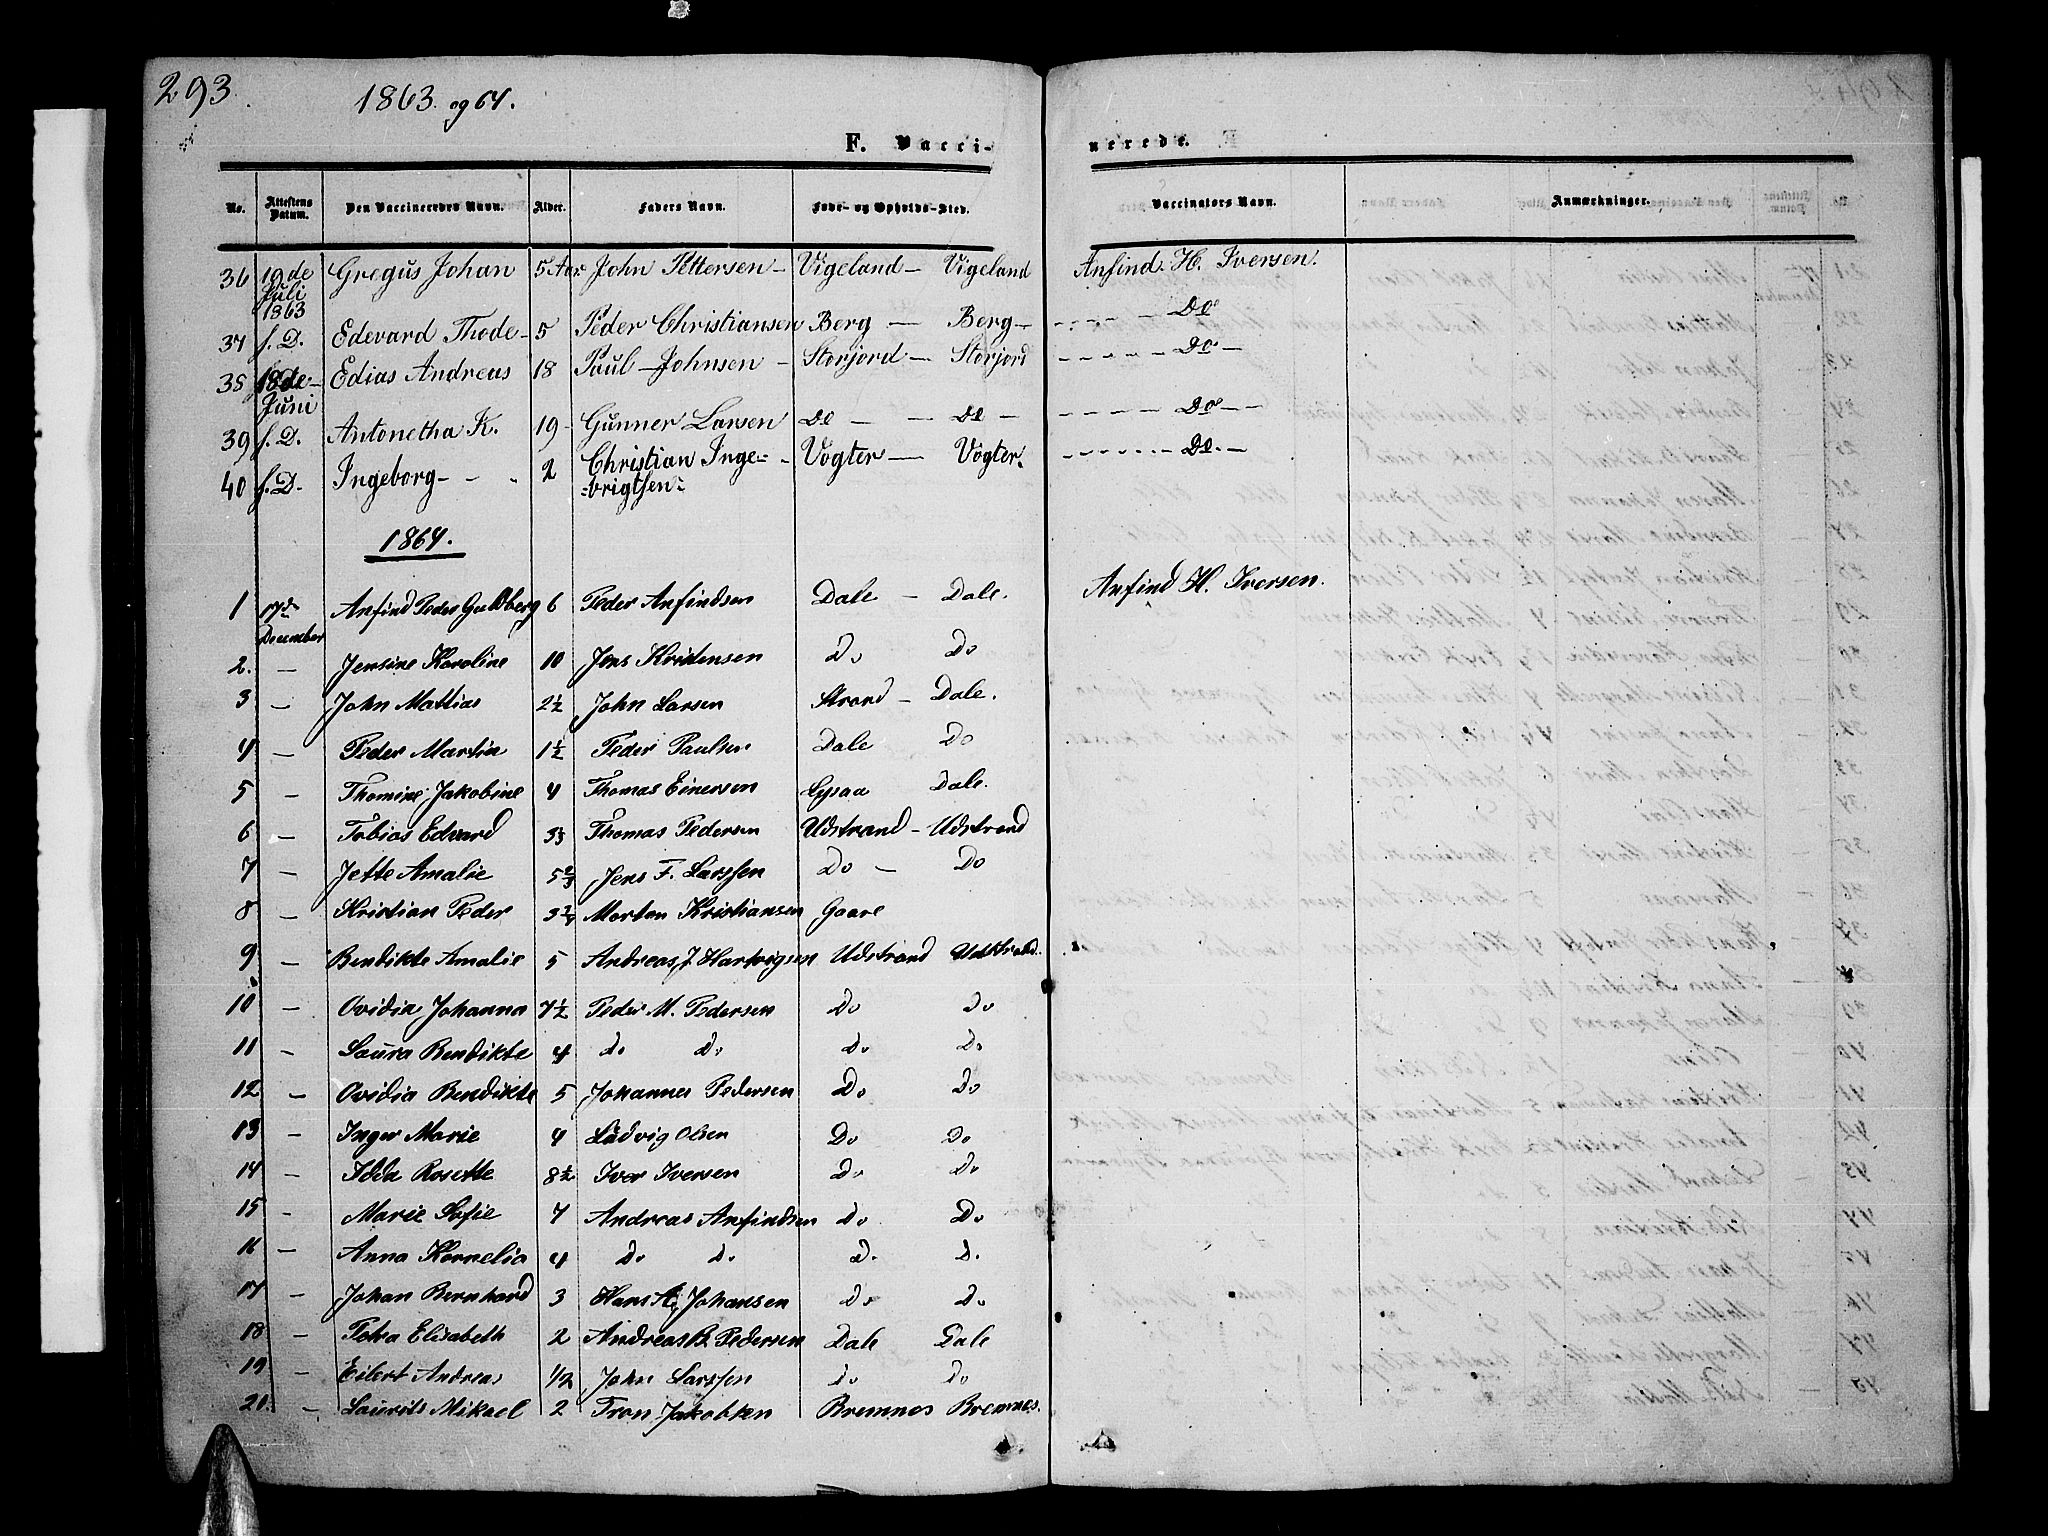 293
1863. og 64.
F. Vacci- nerede.
No. Attestens Datum. Den Vaccineredes Navn. Alder. Faders Navn. Føde- og Opholds-Sted. Vaccinators Navn. Anmærkninger.
36 19de Juli 1863 Gregus Johan 5 Aar John Pettersen - Vigeland - Vigeland Anfind. H. Iversen.
37 f. D. Edevard Thode - 5 Peder Christiansen Berg - Berg - - - - - Do
38 18de - Juni Edias Andreas 18 Paul - Johnsen - Storjord - Storjord - - - - Do -
39 f. D. Antonetha K. 19 - Gunner Larsen Do - - Do - - - - - Do - -
40 f. D. Ingeborg - - - 2 Christian Inge- - Vogter - Vogter. - - - - - Do. -
-brigtsen-
1864.
1 17de December Anfind Peder Guldberg 6 Peder Anfindsen Dale - Dale. Anfind H. Iversen.
2. - Jensine Karoline 10 Jens Kristensen Do Do
3 - John Mattias 2½ John Larsen Strand - Dale.
4 - Peder Martin 1½ Peder Paulsen Dale Do
5 - Thomine Jakobine 4 Thomas Einersen Lysaa Dale.
6 - Tobias Edvard Thomas Pedersen Udstrand - Udstrand
7 - Jette Amalie 5⅔ Jens F. Larssen Do - Do
8 - Kristian Peder Morton Kristiansen Gaare
9 - Bendikte Amalie 5 Andreas J Hartvigsen Udstrand Udstrand.
10 - Ovidia Johanna 7½ Peder M. Pedersen Do Do
11 - Laura Bendikte 4 do do Do Do
12 - Ovidia Bendikte 5 Johannes Pedersen Do Do
13 - Inger Marie 4 Ludvig Olsen Do Do
14 - Idda Rosette 8½ Iver Iversen Do Do
15 - Marie Sofie 7 Andreas Anfindsen Do Do
16 - Anna Kornelia 4 Do Do D. D.
17 - Johan Bernhard 3 Hans A. Johansen Do Do
18 - Tora Elisabeth 2 Andreas B. Pedersen Dale Dale
19 - Eilert Andreas 1/2 John Larssen Do Do
20. - Laurits Mikael 2 Tron Jakobsen Bremnes Bremnes.